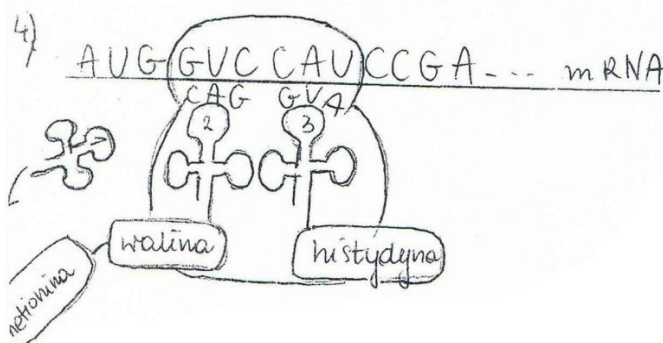 4)
AUG GUC CAU CCGA... mRNA
CAG GUA
2 3
walina histydyna
metionina